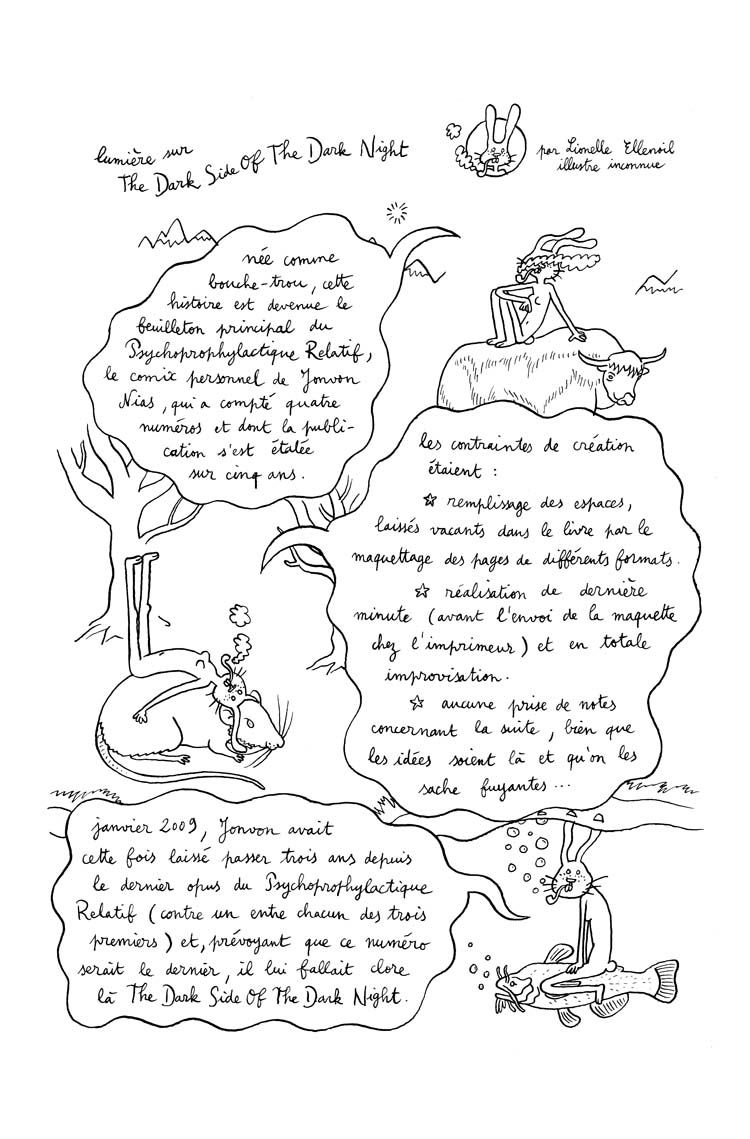 lumière sur
The Dark Side Of The Dark Night
par Lionelle Ellenoil
illustre inconnue
née comme
bouche-trou, cette
histoire est devenue le
feuilleton principal du
Psychoprophylactique Relatif,
le comix personnel de Jonvon
Nias, qui a compté quatre
numéros et dont la publi-
cation s'est étalée
sur cinq ans.
les contraintes de création
étaient :
☆ remplissage des espaces,
laissés vacants dans le livre par le
maquettage des pages de différents formats.
☆ réalisation de dernière
minute (avant l'envoi de la maquette
chez l'imprimeur) et en totale
improvisation.
☆ aucune prise de notes
concernant la suite, bien que
les idées soient là et qu'on les
sache fuyantes...
janvier 2009, Jonvon avait
cette fois laissé passer trois ans depuis
le dernier opus du Psychoprophylactique
Relatif (contre un entre chacun des trois
premiers) et, prévoyant que ce numéro
serait le dernier, il lui fallait clore
là The Dark Side Of The Dark Night.